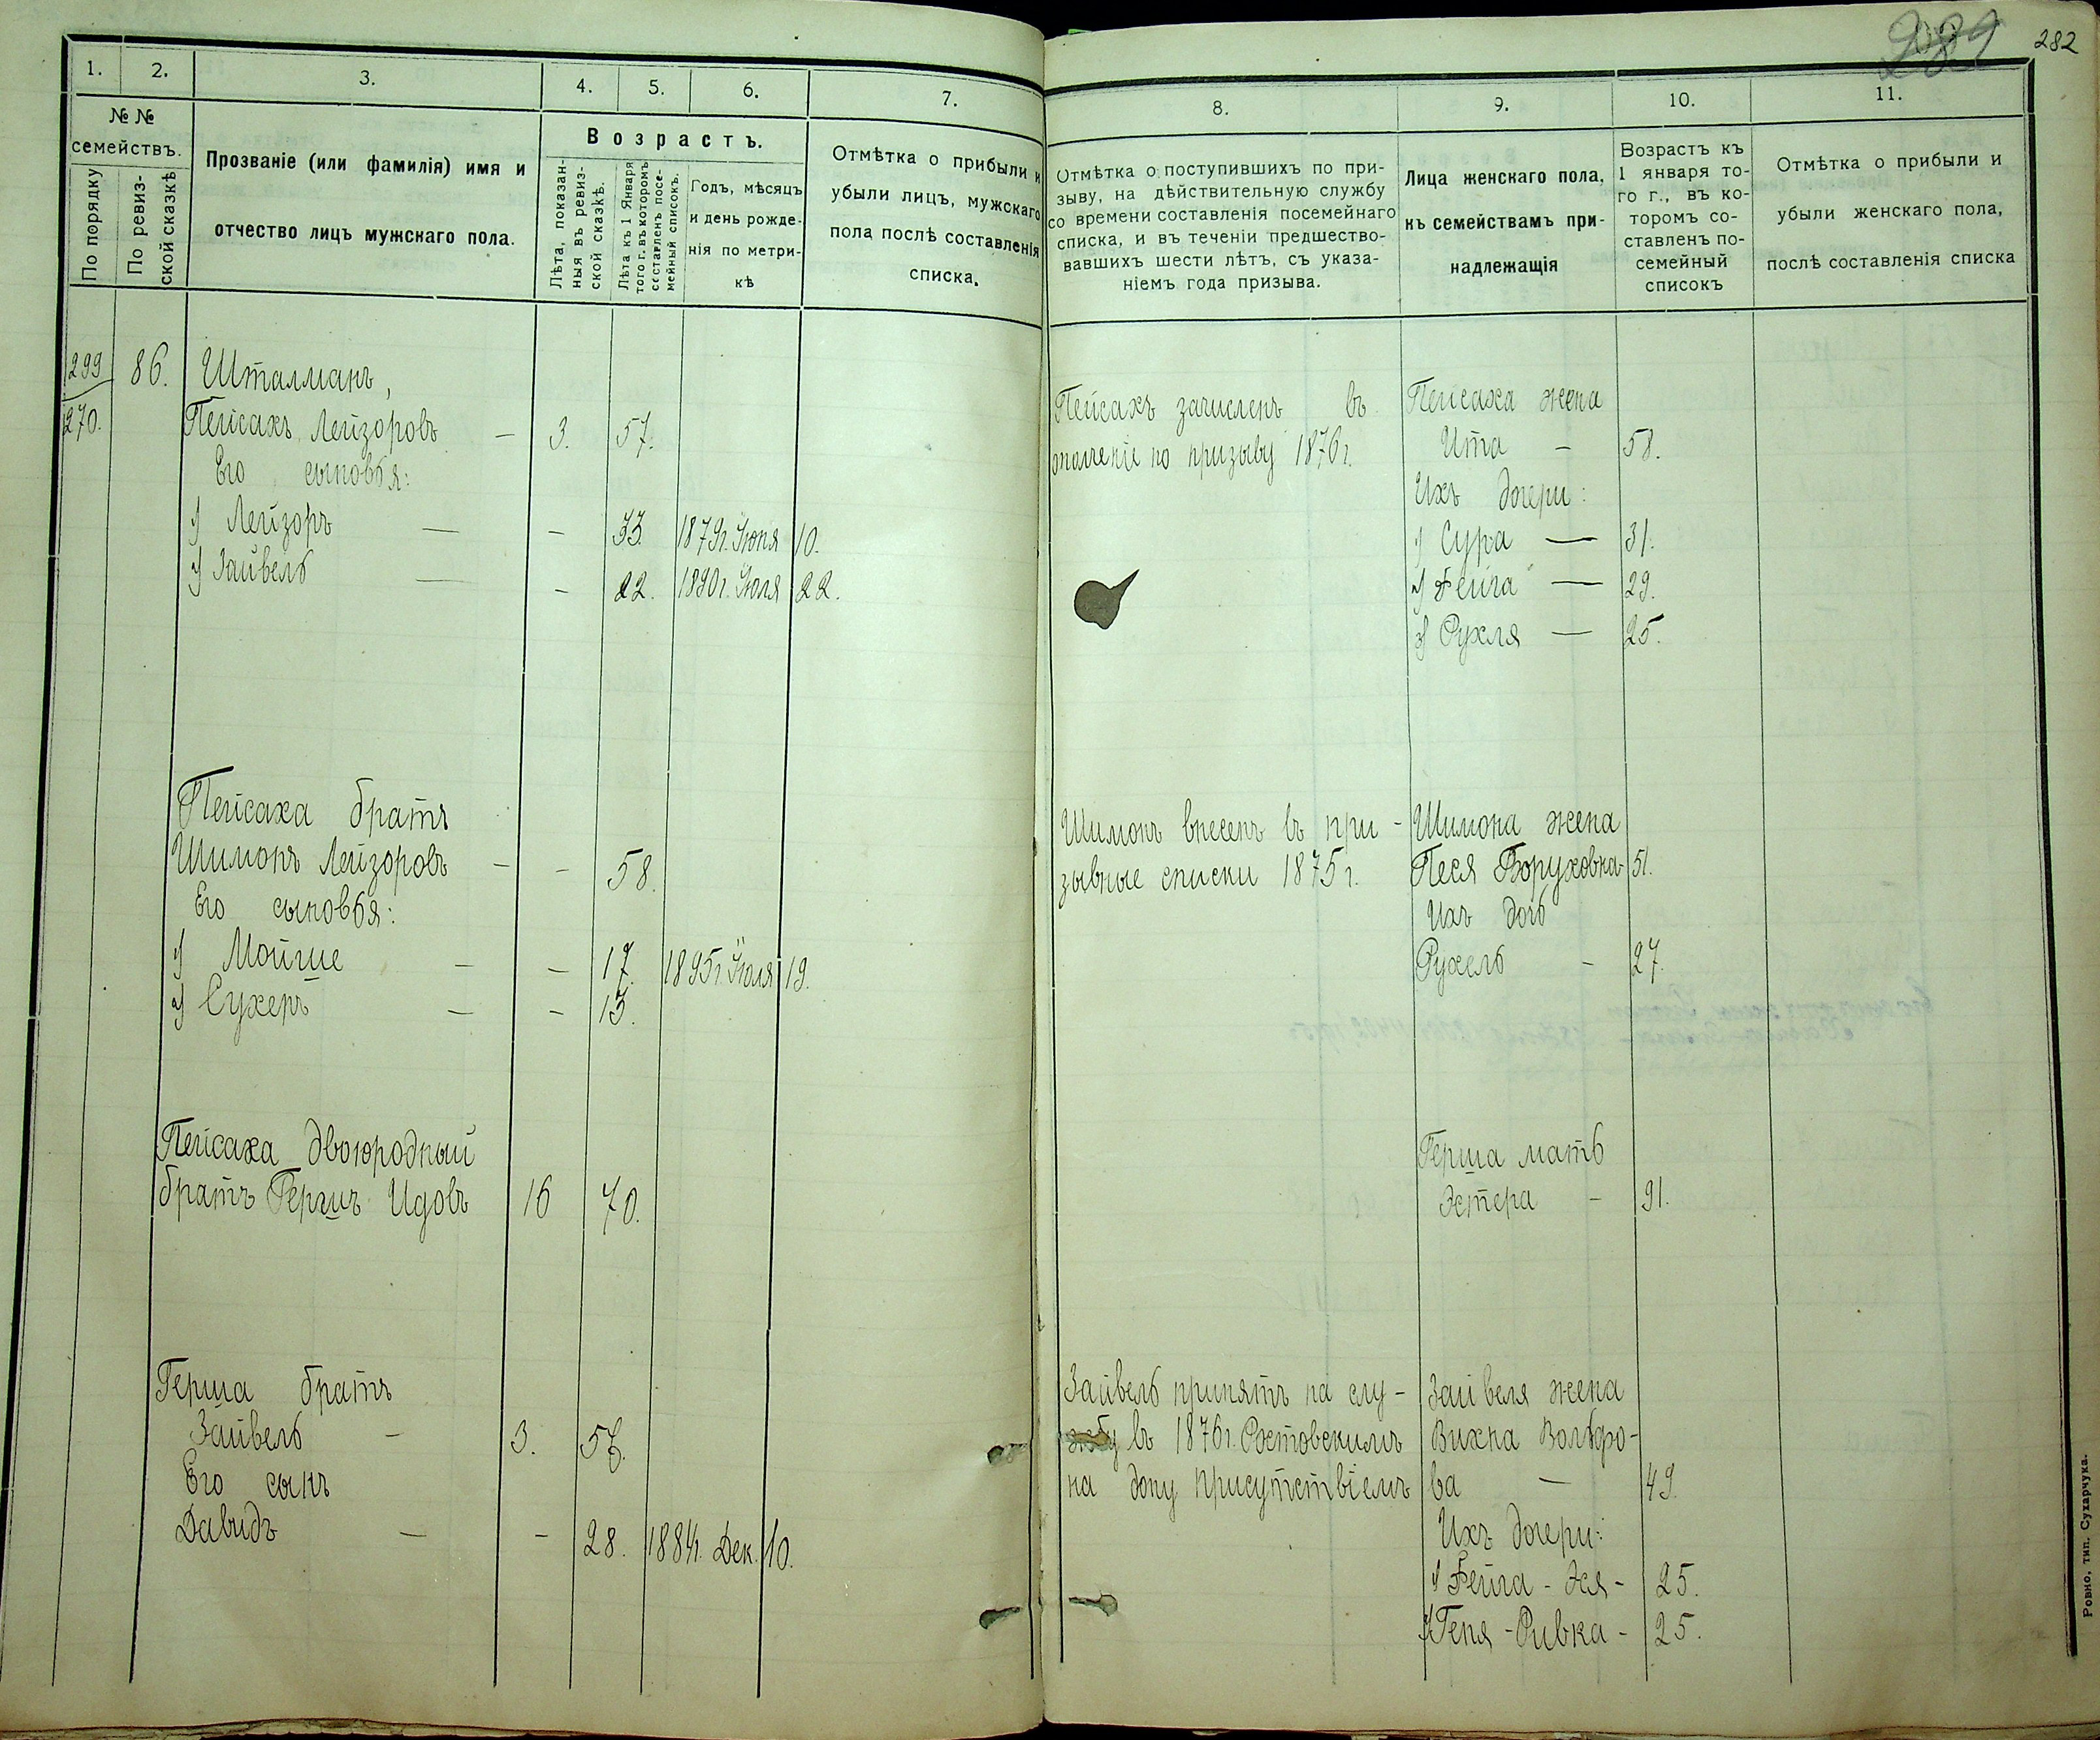 1. 2. 3. 4. 5. 6. 7.
№ №
семействъ.
По порядку
По ревиз-
ской сказкѣ
Прозваніе (или фамилія) имя и
отчество лицъ мужскаго пола.
Возрастъ.
Лѣта, показан-
ныя въ ревиз-
ской сказкѣ.
Лѣта къ 1 Января
того г. въ которомъ
составленъ посе-
мейный списокъ.
Годъ, мѣсяцъ
и день рожде-
нія по метри-
кѣ
Отмѣтка о прибыли и
убыли лицъ, мужскаго
пола послѣ составленія
списка.
299 86. Шталманъ,
270. Пейсахъ Лейзоровъ — 3. 57.
Его сыновья:
1) Лейзоръ — — 33. 1879г. Іюня 10.
2) Зайвель — — 22. 1890г. Іюля 22.
Пейсаха братъ
Шимонъ Лейзоровъ — — 58.
Его сыновья:
1) Мойше — — 17. 1895г. Іюля 19.
2) Сухеръ — — 13.
Пейсаха двоюродный
братъ Гершъ Идовъ 16 70.
Герша братъ
Зайвель — 3. 57.
Его сынъ
Давидъ — — 28. 1884г. Дек. 10.
289 282
8. 9. 10. 11.
Отмѣтка о поступившихъ по при-
зыву, на дѣйствительную службу
со времени составленія посемейнаго
списка, и въ теченіи предшество-
вавшихъ шести лѣтъ, съ указа-
ніемъ года призыва.
Лица женскаго пола,
къ семействамъ при-
надлежащія
Возрастъ къ
1 января то-
го г., въ ко-
торомъ со-
ставленъ по-
семейный
списокъ
Отмѣтка о прибыли и
убыли женскаго пола,
послѣ составленія списка
Пейсахъ зачисленъ въ Пейсаха жена
ополченіе по призыву 1876г. Ита — 58.
Ихъ дочери:
1) Сура — 31.
2) Фейга — 29.
3) Рухля — 25.
Шимонъ внесенъ въ при- Шимона жена
зывные списки 1875г. Песя Боруховна 51.
Ихъ дочь
Рухель — 27.
Герша мать
Эстера — 91.
Зайвель принятъ на слу- Зайвеля жена
жбу въ 1876г. Ростовскимъ Вихна Вольфо-
на дону присутствіемъ ва — 49.
Ихъ дочери:
1) Фейга-Эся- 25.
2) Геня-Ривка- 25.
Ровно, тип. Сухарчука.